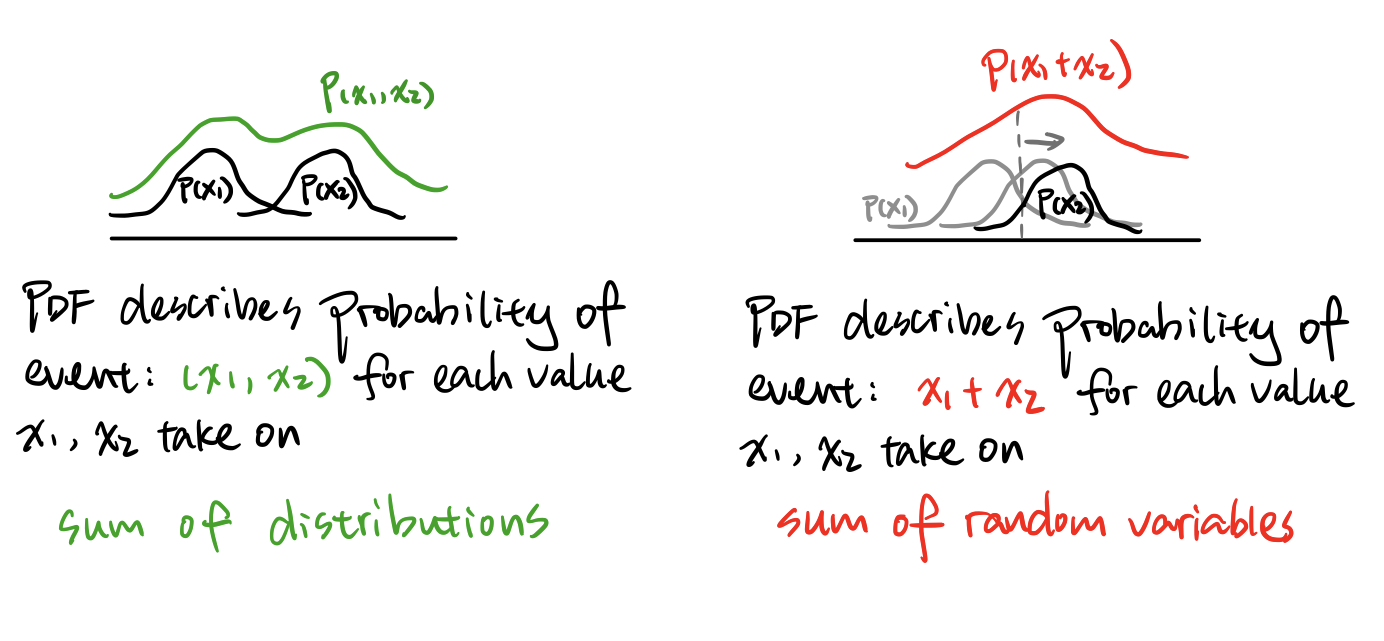 P(x1,x2)
P(x1)
P(x2)
PDF describes probability of
event: (x1, x2) for each value
x1, x2 take on
sum of distributions
P(x1+x2)
P(x1)
P(x2)
PDF describes probability of
event: x1 + x2 for each value
x1, x2 take on
sum of random variables